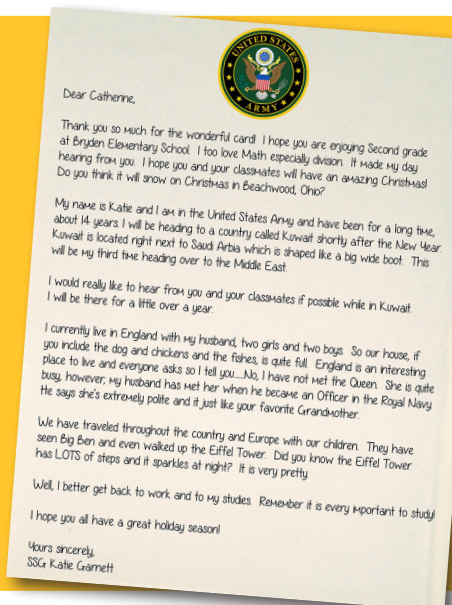 UNITED STATES
ARMY
Dear Catherine,
Thank you so much for the wonderful card! I hope you are enjoying Second grade
at Bryden Elementary School. I too love Math especially division. It made my day
hearing from you. I hope you and your classmates will have an amazing Christmas!
Do you think it will snow on Christmas in Beachwood, Ohio?
My name is Katie and I am in the United States Army and have been for a long time,
about 14 years. I will be heading to a country called Kuwait shortly after the New Year.
Kuwait is located right next to Saudi Arbia which is shaped like a big wide boot. This
will be my third time heading over to the Middle East.
I would really like to hear from you and your classmates if possible while in Kuwait.
I will be there for a little over a year.
I currently live in England with my husband, two girls and two boys. So our house, if
you include the dog and chickens and the fishes, is quite full. England is an interesting
place to live and everyone asks so I tell you.....No, I have not met the Queen. She is quite
busy, however, my husband has met her when he became an Officer in the Royal Navy.
He says she's extremely polite and it just like your favorite Grandmother.
We have traveled throughout the country and Europe with our children. They have
seen Big Ben and even walked up the Eiffel Tower. Did you know the Eiffel Tower
has LOTS of steps and it sparkles at night? It is very pretty.
Well, I better get back to work and to my studies. Remember it is every important to study!
I hope you all have a great holiday season!
Yours sincerely,
SSG Katie Garnett